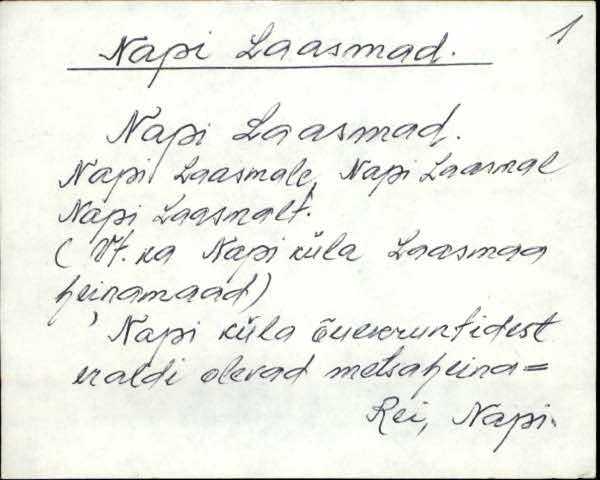 1
Napi Laasmad.
Napi Laasmad.
Napi Laasmale, Napi Laasmal
Napi Laasmalt.
( Vt. ka Napi küla Laasmaa
heinamaad)
Napi küla õuekruntidest
eraldi olevad metsaheina=
Rei, Napi.